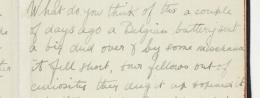 What do you think of this a couple
of days ago a Belgian battery sent
a big dud over & by some mischance
it fell short, our fellows out of
curiosities they dug it up & opened it